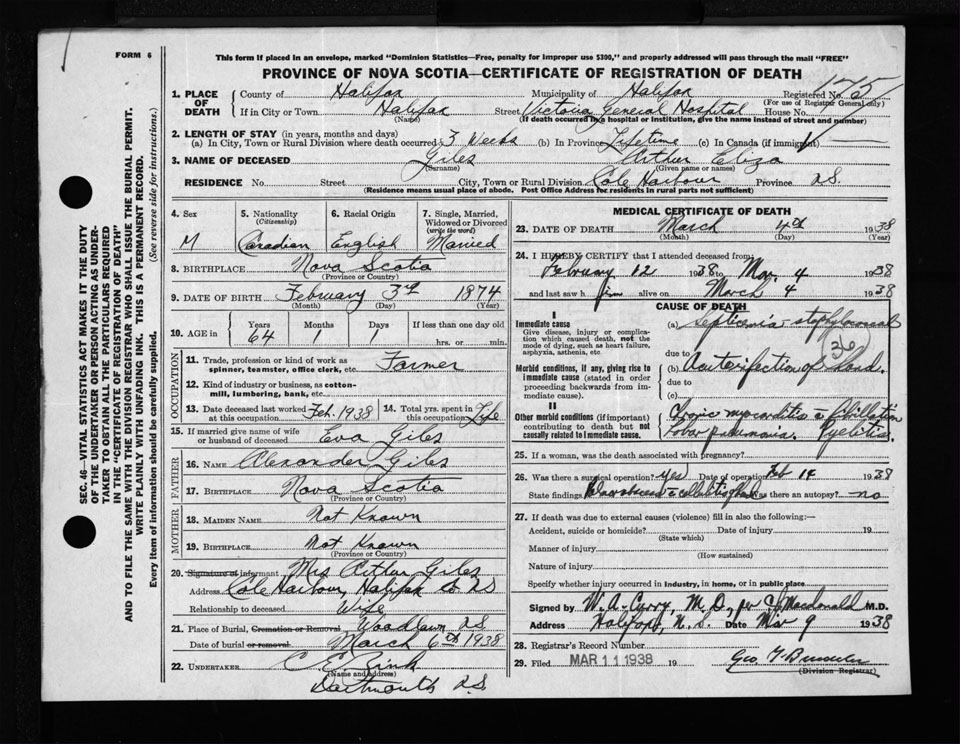 FORM 6
This form if placed in an envelope, marked "Dominion Statistics—Free, penalty for improper use $300," and properly addressed will pass through the mail "FREE"
PROVINCE OF NOVA SCOTIA—CERTIFICATE OF REGISTRATION OF DEATH
SEC. 46—VITAL STATISTICS ACT MAKES IT THE DUTY
OF THE UNDERTAKER OR PERSON ACTING AS UNDER-
TAKER TO OBTAIN ALL THE PARTICULARS REQUIRED
IN THE "CERTIFICATE OF REGISTRATION OF DEATH"
AND TO FILE THE SAME WITH THE DIVISION REGISTRAR WHO SHALL ISSUE THE BURIAL PERMIT.
WRITE PLAINLY WITH UNFADING INK. THIS IS A PERMANENT RECORD.
Every item of information should be carefully supplied. (See reverse side for instructions.)
1. PLACE OF DEATH County of Halifax Municipality of Halifax Registered No. 175
(For use of Registrar General only)
If in City or Town Halifax Street Victoria General Hospital House No.
(Name) (If death occurred in a hospital or institution, give the name instead of street and number)
2. LENGTH OF STAY (in years, months and days)
(a) In City, Town or Rural Division where death occurred 3 Weeks (b) In Province Lifetime (c) In Canada (if immigrant)
3. NAME OF DECEASED Giles Arthur Eliza
(Surname) (Given name or names)
RESIDENCE No. Street City, Town or Rural Division Cole Harbour Province N.S.
(Residence means usual place of abode. Post Office Address for residents in rural parts not sufficient)
4. Sex 5. Nationality 6. Racial Origin 7. Single, Married,
(Citizenship) Widowed or Divorced
(write the word)
M Canadian English Married
8. BIRTHPLACE Nova Scotia
(Province or Country)
9. DATE OF BIRTH February 3rd 1874
(Month) (Day) (Year)
10. AGE in Years Months Days If less than one day old
64 1 1 hrs. or min.
OCCUPATION
11. Trade, profession or kind of work as
spinner, teamster, office clerk, etc. Farmer
12. Kind of industry or business, as cotton-
mill, lumbering, bank, etc.
13. Date deceased last worked at this occupation Feb. 1938 14. Total yrs. spent in this occupation Life
15. If married give name of wife
or husband of deceased Eva Giles
FATHER
16. NAME Alexander Giles
17. BIRTHPLACE Nova Scotia
(Province or Country)
MOTHER
18. MAIDEN NAME Not Known
19. BIRTHPLACE Not Known
(Province or Country)
20. Signature of informant Mrs Arthur Giles
Address Cole Harbour, Halifax Co. N.S
Relationship to deceased Wife
21. Place of Burial, Cremation or Removal Woodlawn N.S.
Date of burial or removal March 6th 1938
22. UNDERTAKER C. E. Zink
(Name and address)
Dartmouth N.S.
MEDICAL CERTIFICATE OF DEATH
23. DATE OF DEATH March 4th 1938
(Month) (Day) (Year)
24. I HEREBY CERTIFY that I attended deceased from
February 12 1938 to Mar. 4 1938
and last saw h im alive on March 4 1938
CAUSE OF DEATH
I
Immediate cause
Give disease, injury or complica-
tion which caused death, not the
mode of dying, such as heart failure,
asphyxia, asthenia, etc.
(a) Septicemia - staphylococcal
36
due to
Morbid conditions, if any, giving rise to
immediate cause (stated in order
proceeding backwards from im-
mediate cause).
(b) Acute infection of hand.
due to
(c)
II
Other morbid conditions (if important)
contributing to death but not
causally related to immediate cause.
Chronic myocarditis c fibrillation
Lobar pneumonia. Pyelitis.
25. If a woman, was the death associated with pregnancy?
26. Was there a surgical operation? yes Date of operation Feb 14 1938
State findings Was there an autopsy? no
27. If death was due to external causes (violence) fill in also the following:—
Accident, suicide or homicide? Date of injury 19
(State which)
Manner of injury
(How sustained)
Nature of injury
Specify whether injury occurred in industry, in home, or in public place
Signed by W. A. Curry, M.D., per C. Macdonald M.D.
Address Halifax, N.S. Date Mar 9 1938
28. Registrar's Record Number
29. Filed MAR 11 1938 19
(Division Registrar)